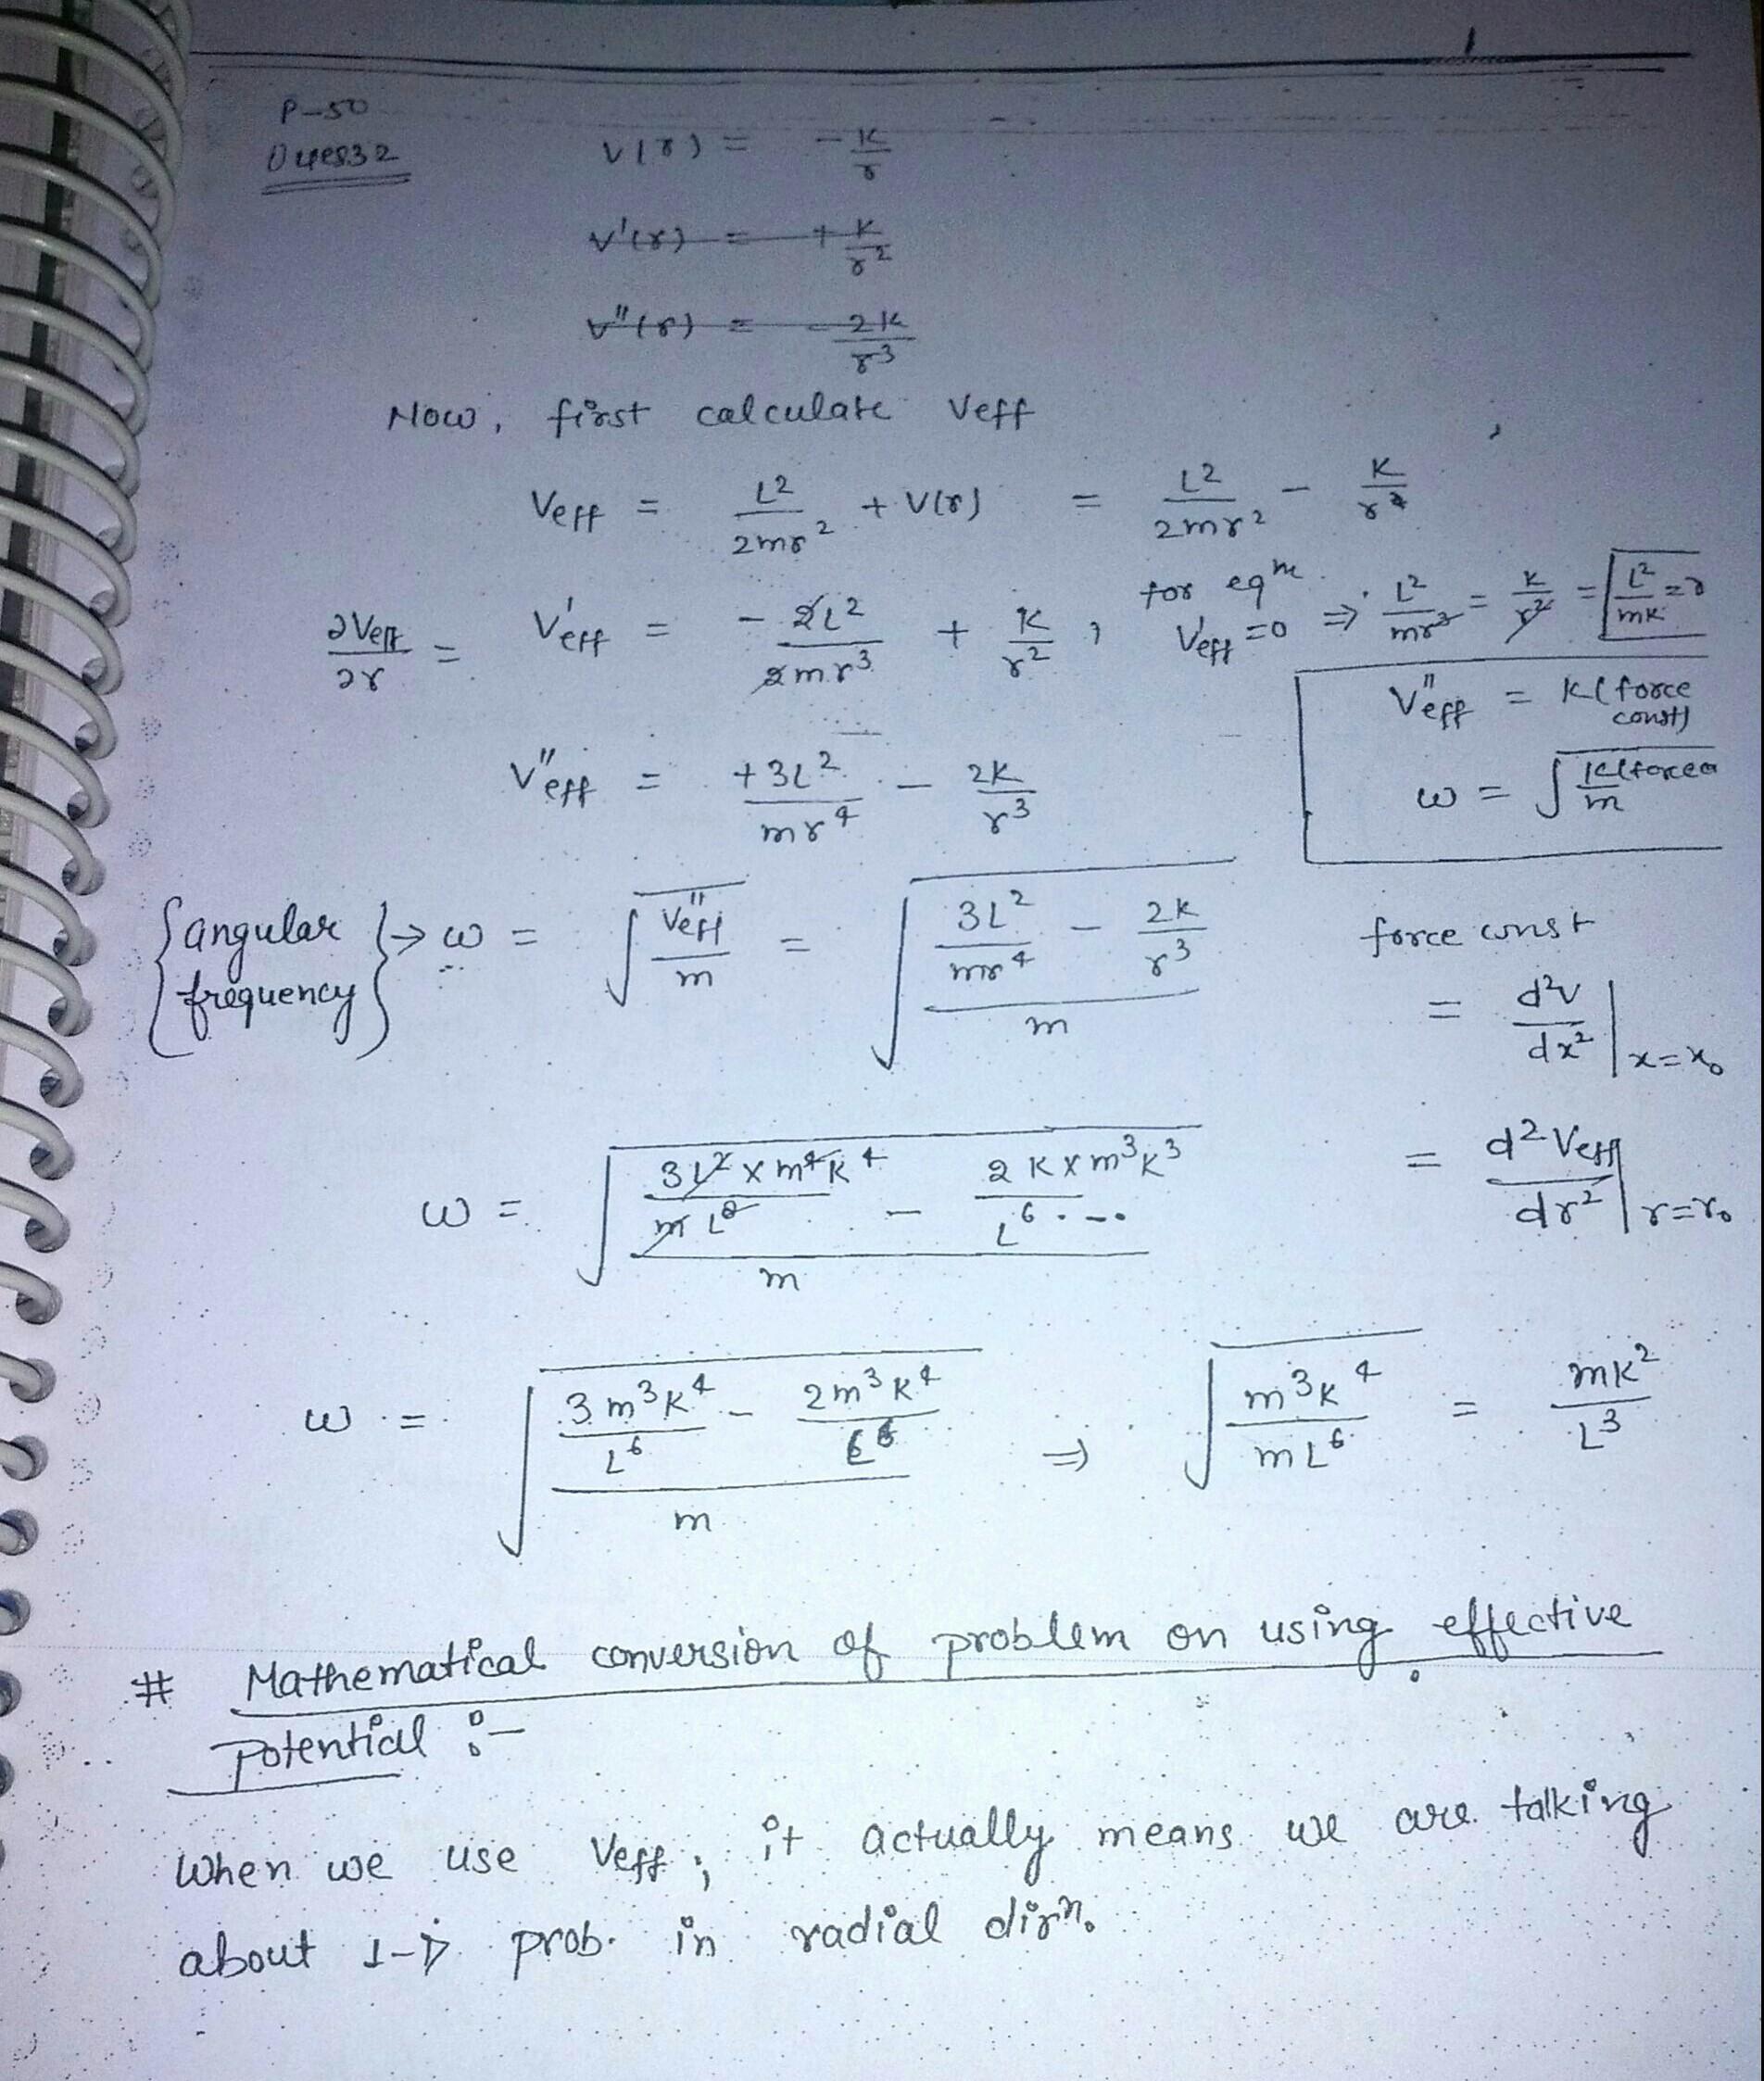 P-50
Ques32
V(r) = -K/r
V'(r) = +K/r²
V''(r) = -2K/r³
Now, first calculate Veff
Veff = L²/2mr² + V(r) = L²/2mr² - K/r
∂Veff/∂r = V'eff = -2L²/2mr³ + K/r² , for eqm. V'eff =0 ⇒ L²/mr³ = K/r² = L²/mK = r
V''eff = K(force const)
V''eff = +3L²/mr⁴ - 2K/r³
ω = √(K(force)/m)
{angular frequency} → ω = √(V''eff/m) = √((3L²/mr⁴ - 2K/r³)/m)
force const
= d²V/dx² |x=x₀
ω = √((3L²×m⁴K⁴/mL⁸ - 2K×m³K³/L⁶)/m)
= d²Veff/dr² |r=r₀
ω = √((3m³K⁴/L⁶ - 2m³K⁴/L⁶)/m) ⇒ √(m³K⁴/mL⁶) = mK²/L³
# Mathematical conversion of problem on using effective
potential :-
When we use Veff, it actually means we are talking
about 1-D prob. in radial dirn.